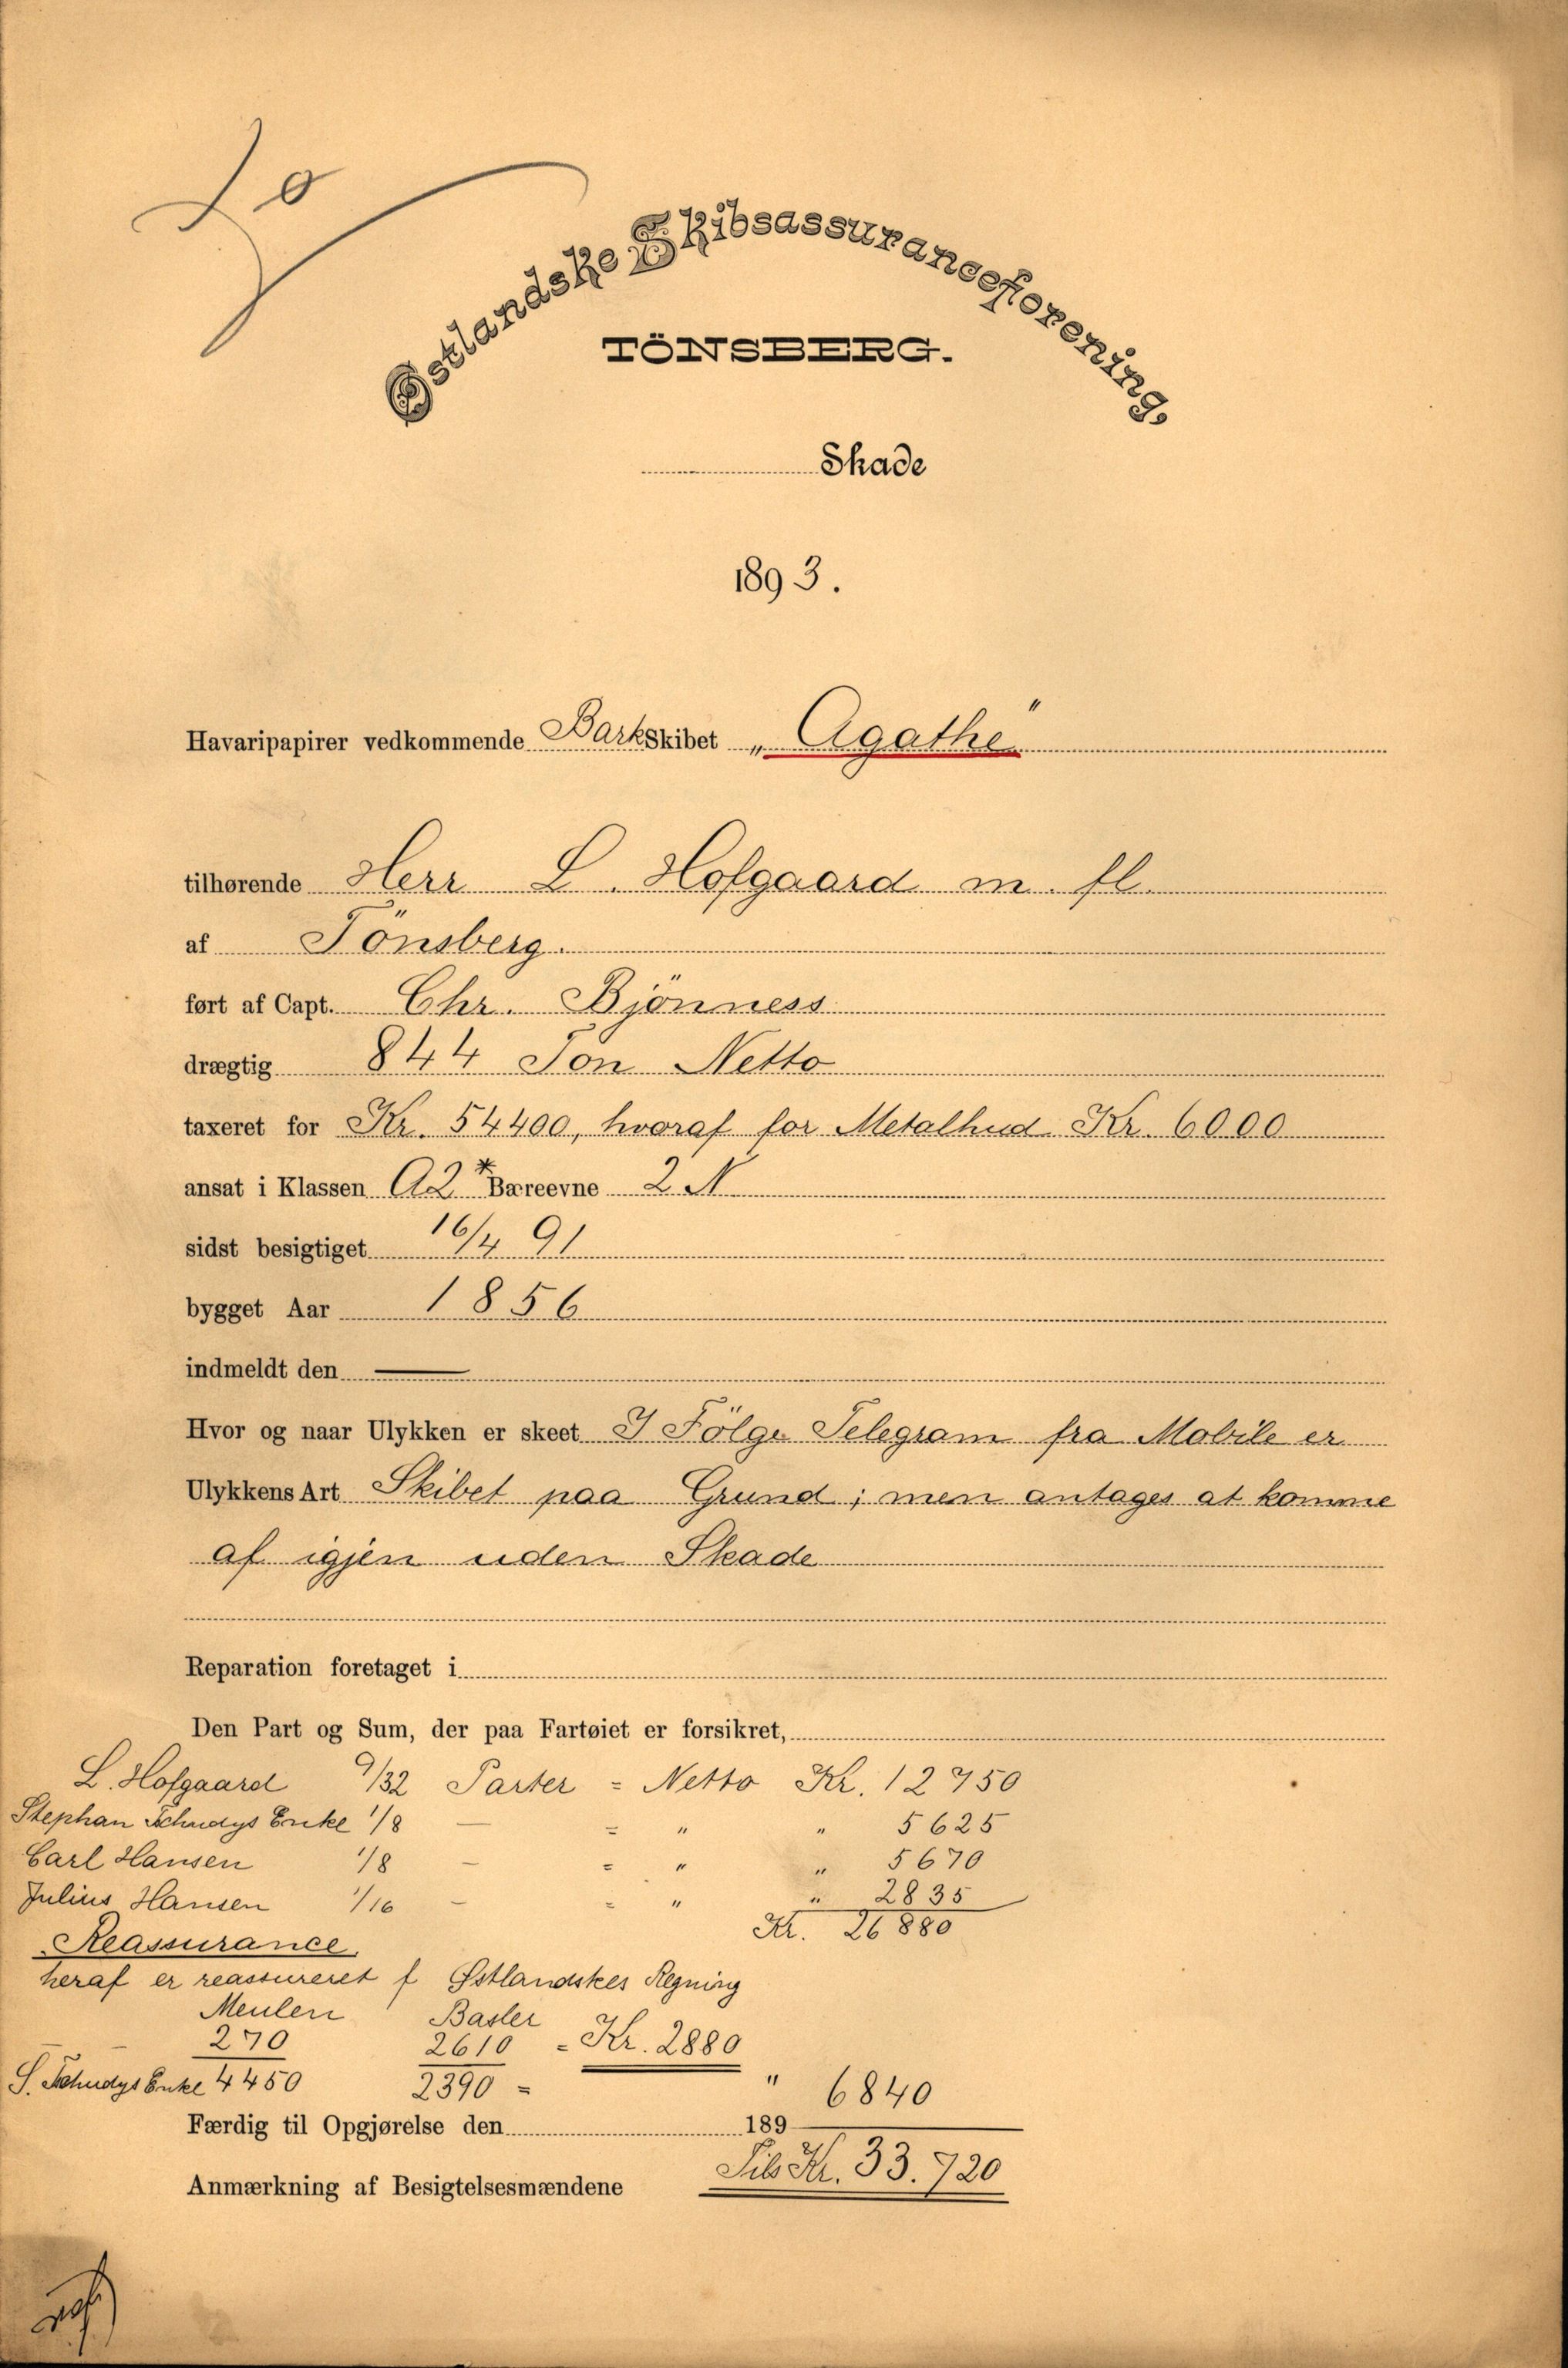 Østlandske Skibsassuranceforening,
TÖNSBERG.
Skade
1893.
Havaripapirer vedkommende Barkskibet „Agathe"
tilhørende Herr L. Hofgaard m. fl.
af Tönsberg.
ført af Capt. Chr. Bjönness
drægtig 844 Ton Netto
taxeret for Kr. 54400, hvoraf for Metalhud Kr. 6000
ansat i Klassen A2* Bæreevne 2 N
sidst besigtiget 16/4 91
bygget Aar 1856
indmeldt den —
Hvor og naar Ulykken er skeet I Fölge Telegram fra Mobile er
Ulykkens Art Skibet paa Grund; men antages at komme
af igjen uden Skade
Reparation foretaget i
Den Part og Sum, der paa Fartøiet er forsikret,
L. Hofgaard 9/32 Parter = Netto Kr. 12750
Stephan Schudys Enke 1/8 — = " " 5625
Carl Hansen 1/8 — = " " 5670
Julius Hansen 1/16 — = " " 2835
Kr. 26880
Reassurance.
heraf er reassureret f Østlandskes Regning
Meulen Basler
270 2610 = Kr. 2880
S. Schudys Enke 4450 2390 = " 6840
Færdig til Opgjørelse den 189
Kr. 33.720
Anmærkning af Besigtelsesmændene